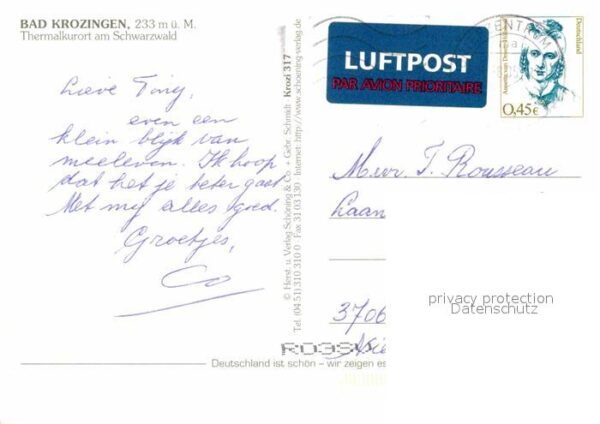 BAD KROZINGEN, 233 m ü. M.
Thermalkurort am Schwarzwald
Lieve Tiny,
even een
klein blijk van
meeleven. Ik hoop
dat het je beter gaat
Met mij alles goed.
Groetjes,
Co
© Herst. u. Verlag Schöning & Co. + Gebr. Schmidt Krozi 317
Tel. (04 51) 310 310 0 Fax 31 03 130 · Internet: http://www.schoening-verlag.de
LUFTPOST
PAR AVION PRIORITAIRE
ZENTRUM
Deutschland
0,45€
Mevr. T. Rousseau
Laan
3706
privacy protection
Datenschutz
Deutschland ist schön – wir zeigen es